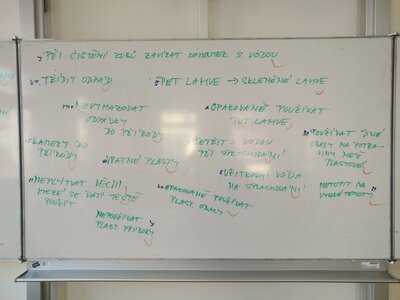 PŘI ČISTĚNÍ ZUBŮ ZAVÍRAT KOHOUTEK S VODOU
TŘÍDIT ODPAD
PET LAHVE → SKLENĚNÉ LAHVE
NEVYHAZOVAT
ODPADKY
DO PŘÍRODY
OPAKOVANĚ POUŽÍVAT
PET LAHVE
POUŽÍVAT JINÉ
OBALY NA POTRA-
VINY NEŽ
PLASTOVÉ
KAMERY DO
PŘÍRODY
ŠPATNÉ PLASTY
ŠETŘIT S VODOU
PŘI SPRACHOVÁNÍ
UŽITKOVÁ VODA
NA SPRACHOVÁNÍ
NETOPIT NA
VYSOKÉ TEPLOTY
NEPLÝTVAT VĚCMI,
KTERÉ SE DAJÍ JEŠTĚ
POUŽÍT
OPAKOVANĚ POUŽÍVAT
PLAST. OBALY
NEPOUŽÍVAT
PLAST PŘÍBORY